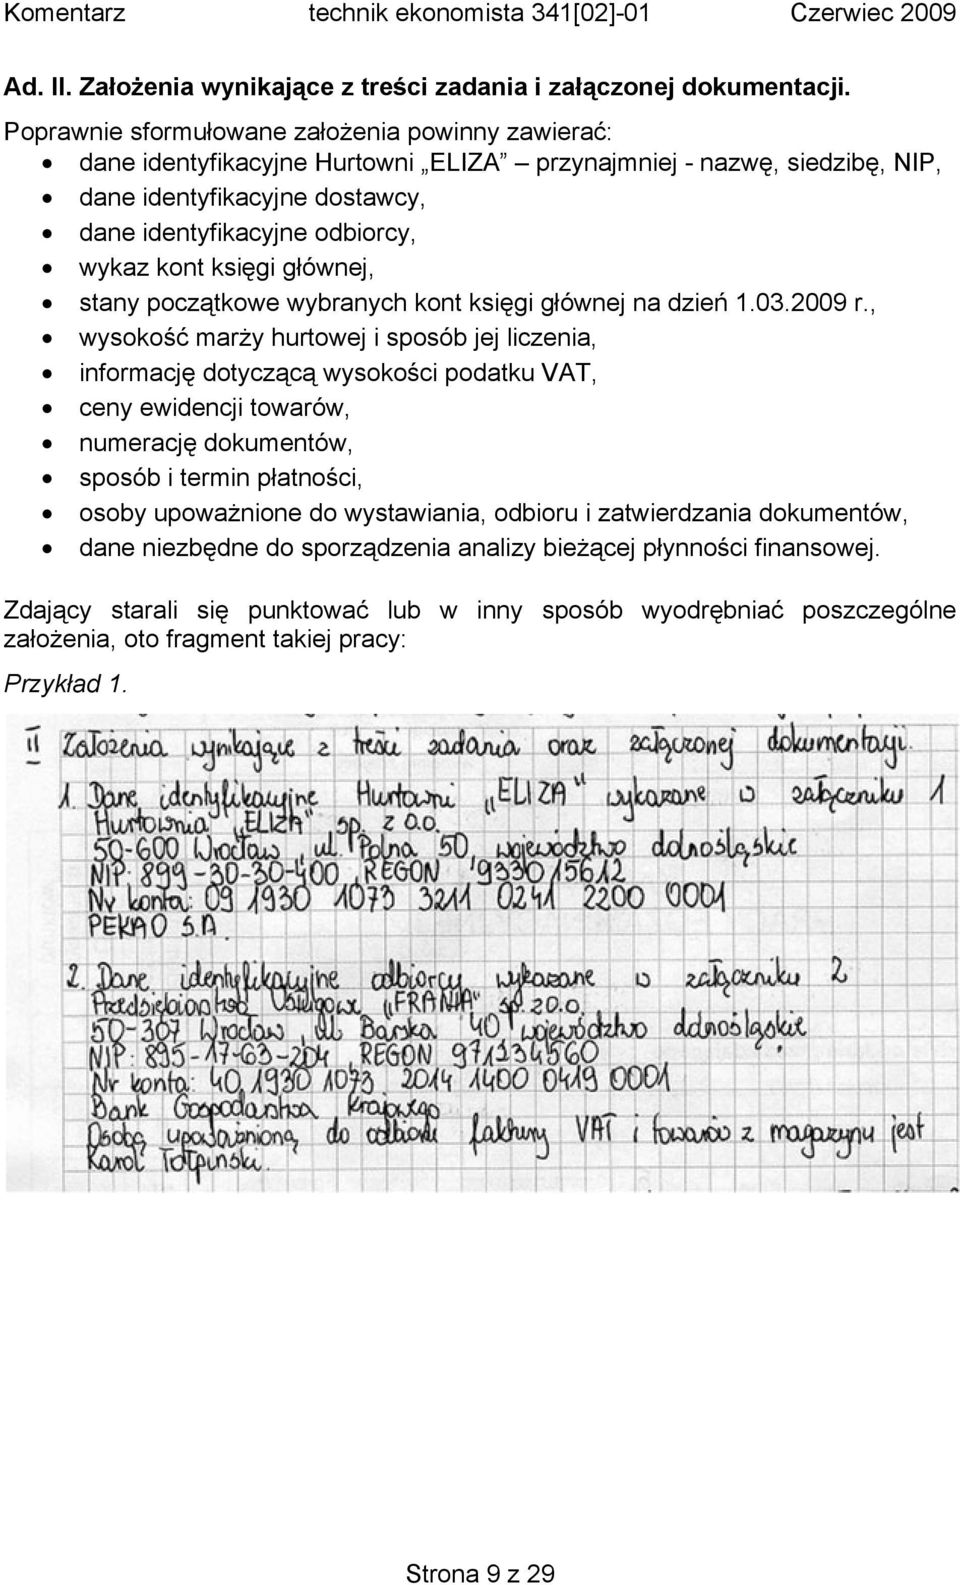 Komentarz technik ekonomista 341[02]-01 Czerwiec 2009
Ad. II. Założenia wynikające z treści zadania i załączonej dokumentacji.
Poprawnie sformułowane założenia powinny zawierać:
• dane identyfikacyjne Hurtowni „ELIZA” – przynajmniej - nazwę, siedzibę, NIP,
• dane identyfikacyjne dostawcy,
• dane identyfikacyjne odbiorcy,
• wykaz kont księgi głównej,
• stany początkowe wybranych kont księgi głównej na dzień 1.03.2009 r.,
• wysokość marży hurtowej i sposób jej liczenia,
• informację dotyczącą wysokości podatku VAT,
• ceny ewidencji towarów,
• numerację dokumentów,
• sposób i termin płatności,
• osoby upoważnione do wystawiania, odbioru i zatwierdzania dokumentów,
• dane niezbędne do sporządzenia analizy bieżącej płynności finansowej.
Zdający starali się punktować lub w inny sposób wyodrębniać poszczególne
założenia, oto fragment takiej pracy:
Przykład 1.
II Założenia wynikające z treści zadania oraz załączonej dokumentacji.
1. Dane identyfikacyjne Hurtowni „ELIZA” wykazane w załączniku 1
Hurtownia „ELIZA” sp. z o.o.
50-600 Wrocław, ul. Polna 50, województwo dolnośląskie
NIP: 899-30-30-400, REGON 933015612
Nr konta: 09 1930 1073 3211 0241 2200 0001
PEKAO S.A.
2. Dane identyfikacyjne odbiorcy wykazane w załączniku 2
Przedsiębiorstwo Usługowe „FRANIA” sp. z o.o.
50-307 Wrocław, ul Barska 40 województwo dolnośląskie
NIP: 895-17-63-204, REGON 971234560
Nr konta: 40 1930 1073 2014 1400 0419 0001
Bank Gospodarstwa Krajowego
Osobą upoważnioną do odbioru faktury VAT i towarów z magazynu jest
Karol Tołpiński.
Strona 9 z 29